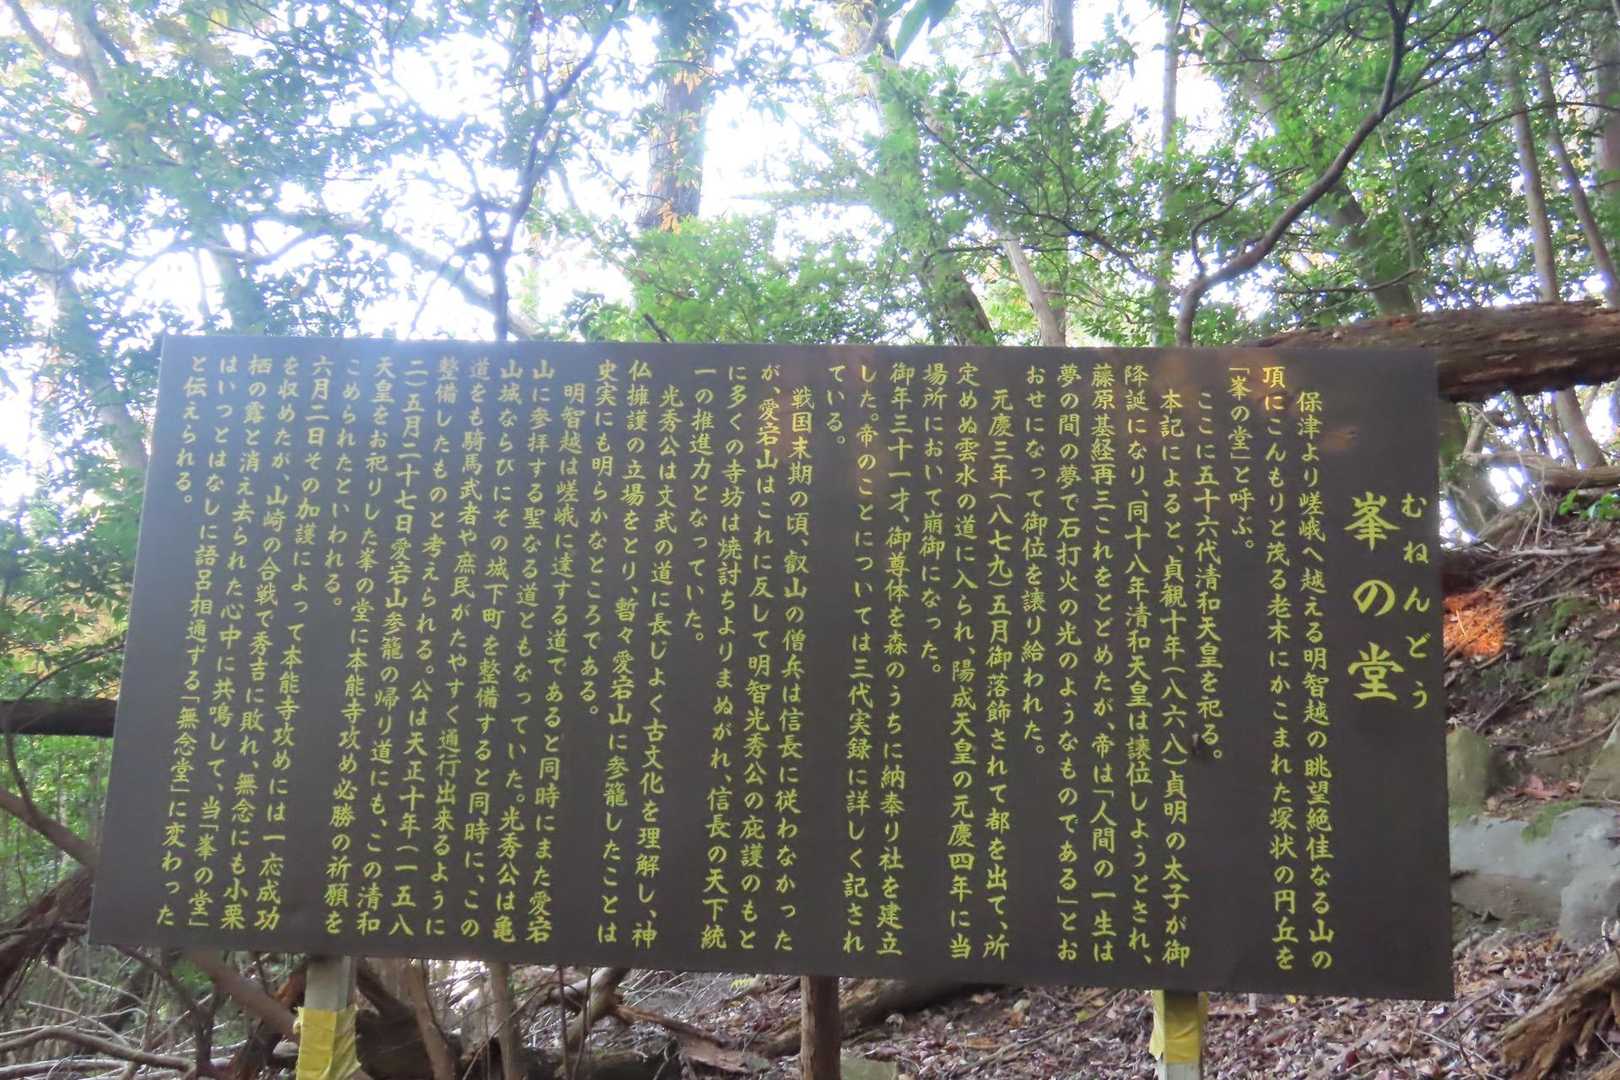 むねんどう
峯の堂
保津より嵯峨へ越える明智越の眺望絶佳なる山の
頂にこんもりと茂る老木にかこまれた塚状の円丘を
「峯の堂」と呼ぶ。
ここに五十六代清和天皇を祀る。
本記によると、貞観十年(八六八)貞明の太子が御
降誕になり、同十八年清和天皇は譲位しようとされ、
藤原基経再三これをとどめたが、帝は「人間の一生は
夢の間の夢で石打火の光のようなものてある」とお
おせになって御位を譲り給われた。
元慶三年(八七九)五月御落飾されて都を出て、所
定めぬ雲水の道に入られ、陽成天皇の元慶四年に当
場所において崩御になった。
御年三十一才、御尊体を森のうちに納奉り社を建立
した。帝のことについては三代実録に詳しく記され
ている。
戦国末期の頃、叡山の僧兵は信長に従わなかった
が、愛宕山はこれに反して明智光秀公の庇護のもと
に多くの寺坊は焼討ちよりまぬがれ、信長の天下統
一の推進力となっていた。
光秀公は文武の道に長じよく古文化を理解し、神
仏擁護の立場をとり、暫々愛宕山に参籠したことは
史実にも明らかなところである。
明智越は嵯峨に達する道であると同時にまた愛宕
山に参拝する聖なる道ともなっていた。光秀公は亀
山城ならびにその城下町を整備すると同時に、この
道をも騎馬武者や庶民がたやすく通行出来るように
整備したものと考えられる。公は天正十年(一五八
二)五月二十七日愛宕山参籠の帰り道にも、この清和
天皇をお祀りした峯の堂に本能寺攻め必勝の祈願を
こめられたといわれる。
六月二日その加護によって本能寺攻めには一応成功
を収めたが、山崎の合戦で秀吉に敗れ、無念にも小栗
栖の露と消え去られた心中に共鳴して、当「峯の堂」
はいつとはなしに語呂相通ずる「無念堂」に変わった
と伝えられる。